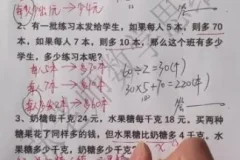 2、有一批练习本发给学生，如果每人5本，则多70
本，如果每人7本，则多10本，那么这个班有多少
学生，多少练习本呢？
每人5本 → 多70本
60÷2=30(个)
每人7本 → 多10本
30×5+70=220(本)
答
3、奶糖每千克24元，水果糖每千克18元，买两种
糖果花了同样多的钱，但水果糖比奶糖多4千克，水
果糖多少千克？奶糖多少千克？